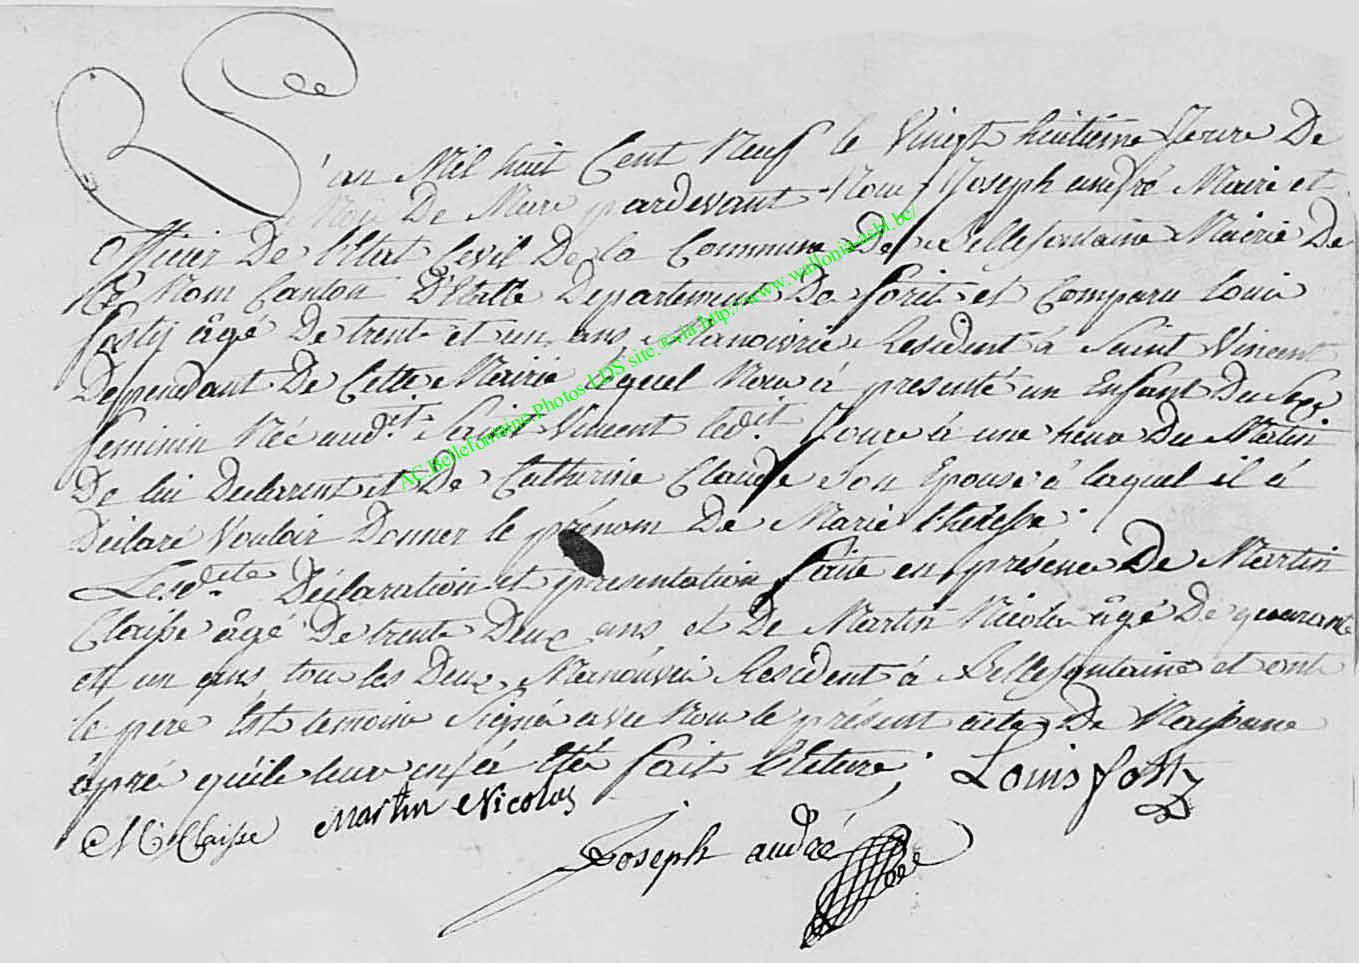 L'an Mil huit Cent Neuf le Vingt huitieme Joure De
Moi De Mars pardevant Nous Joseph andré Maire et
officier De l'Etat Civil De la Commune De Bellefontaine Mairie De
Ce Nom Canton D'Etalle Departement De foret et Comparu Loui
fosty âgé De trente et un ans Manoivrie Resident à Saint Vincent
Dependant De Cette Mairie Lequel Nou à presenté un Enfant Du Sex
feminin Née audit Saint Vincent ledit Joure a une heure Du Matin
De lui Declarent et De Catherine Claude Son Epouse à laquel il à
Déclaré Vouloir Donner le prénom De Marie therese
Lesdite Déclaration et presentation faite en présence De Martin
Claisse âgé De trente Deux ans et De Martin Nicolas âgé De quarante
et un ans tou les Deux Manouvrie Resident à Bellefontaine et ont
le pere Est temoin Signé avec Nou le présent acte De Naissance
âpré qu'il leur en à Eté fait lecture. Louis fosty
M Claisse Martin Nicolas
Joseph andré
AC Bellefontaine-Photos LDS site ®via http://www.wallonia-asbl.be/